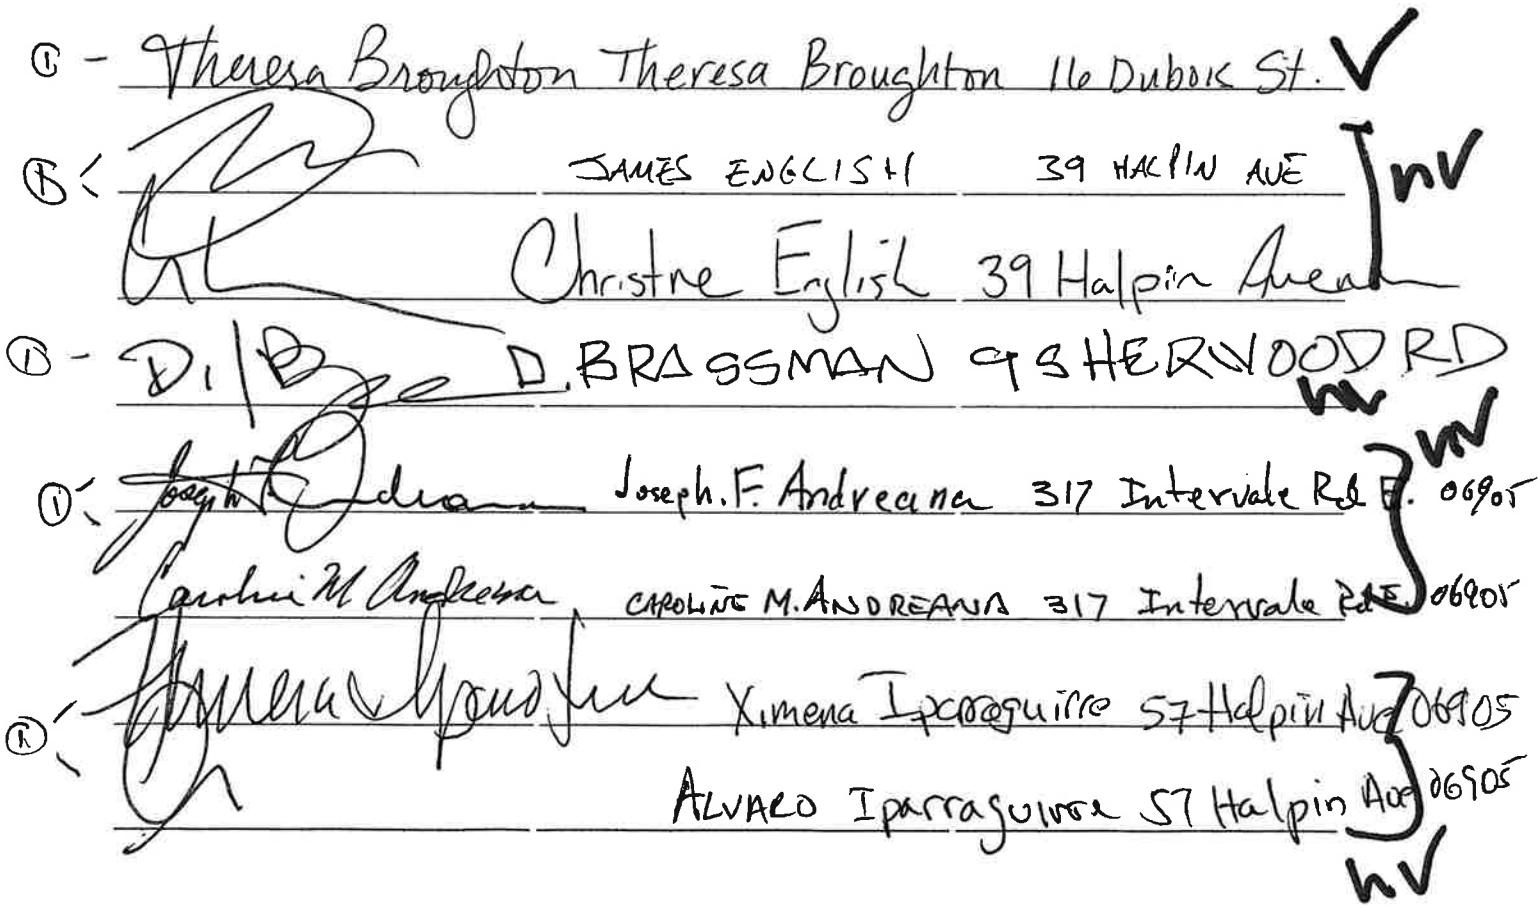 ① - Theresa Broughton Theresa Broughton 16 Dubois St. ✓
JAMES ENGLISH 39 HALPIN AVE nv
Christne English 39 Halpin Avenue
D. BRASSMAN 9 SHERWOOD RD
nv
nv
Joseph F. Andreana Joseph. F. Andreana 317 Intervale Rd E. 06905
Caroline M Andreana CAROLINE M. ANDREANA 317 Intervale Rd E. 06905
Ximena Iparraguirre Ximena Iparraguirre 57 Halpin Ave 06905
ALVARO Iparraguirre 57 Halpin Ave 06905
nv